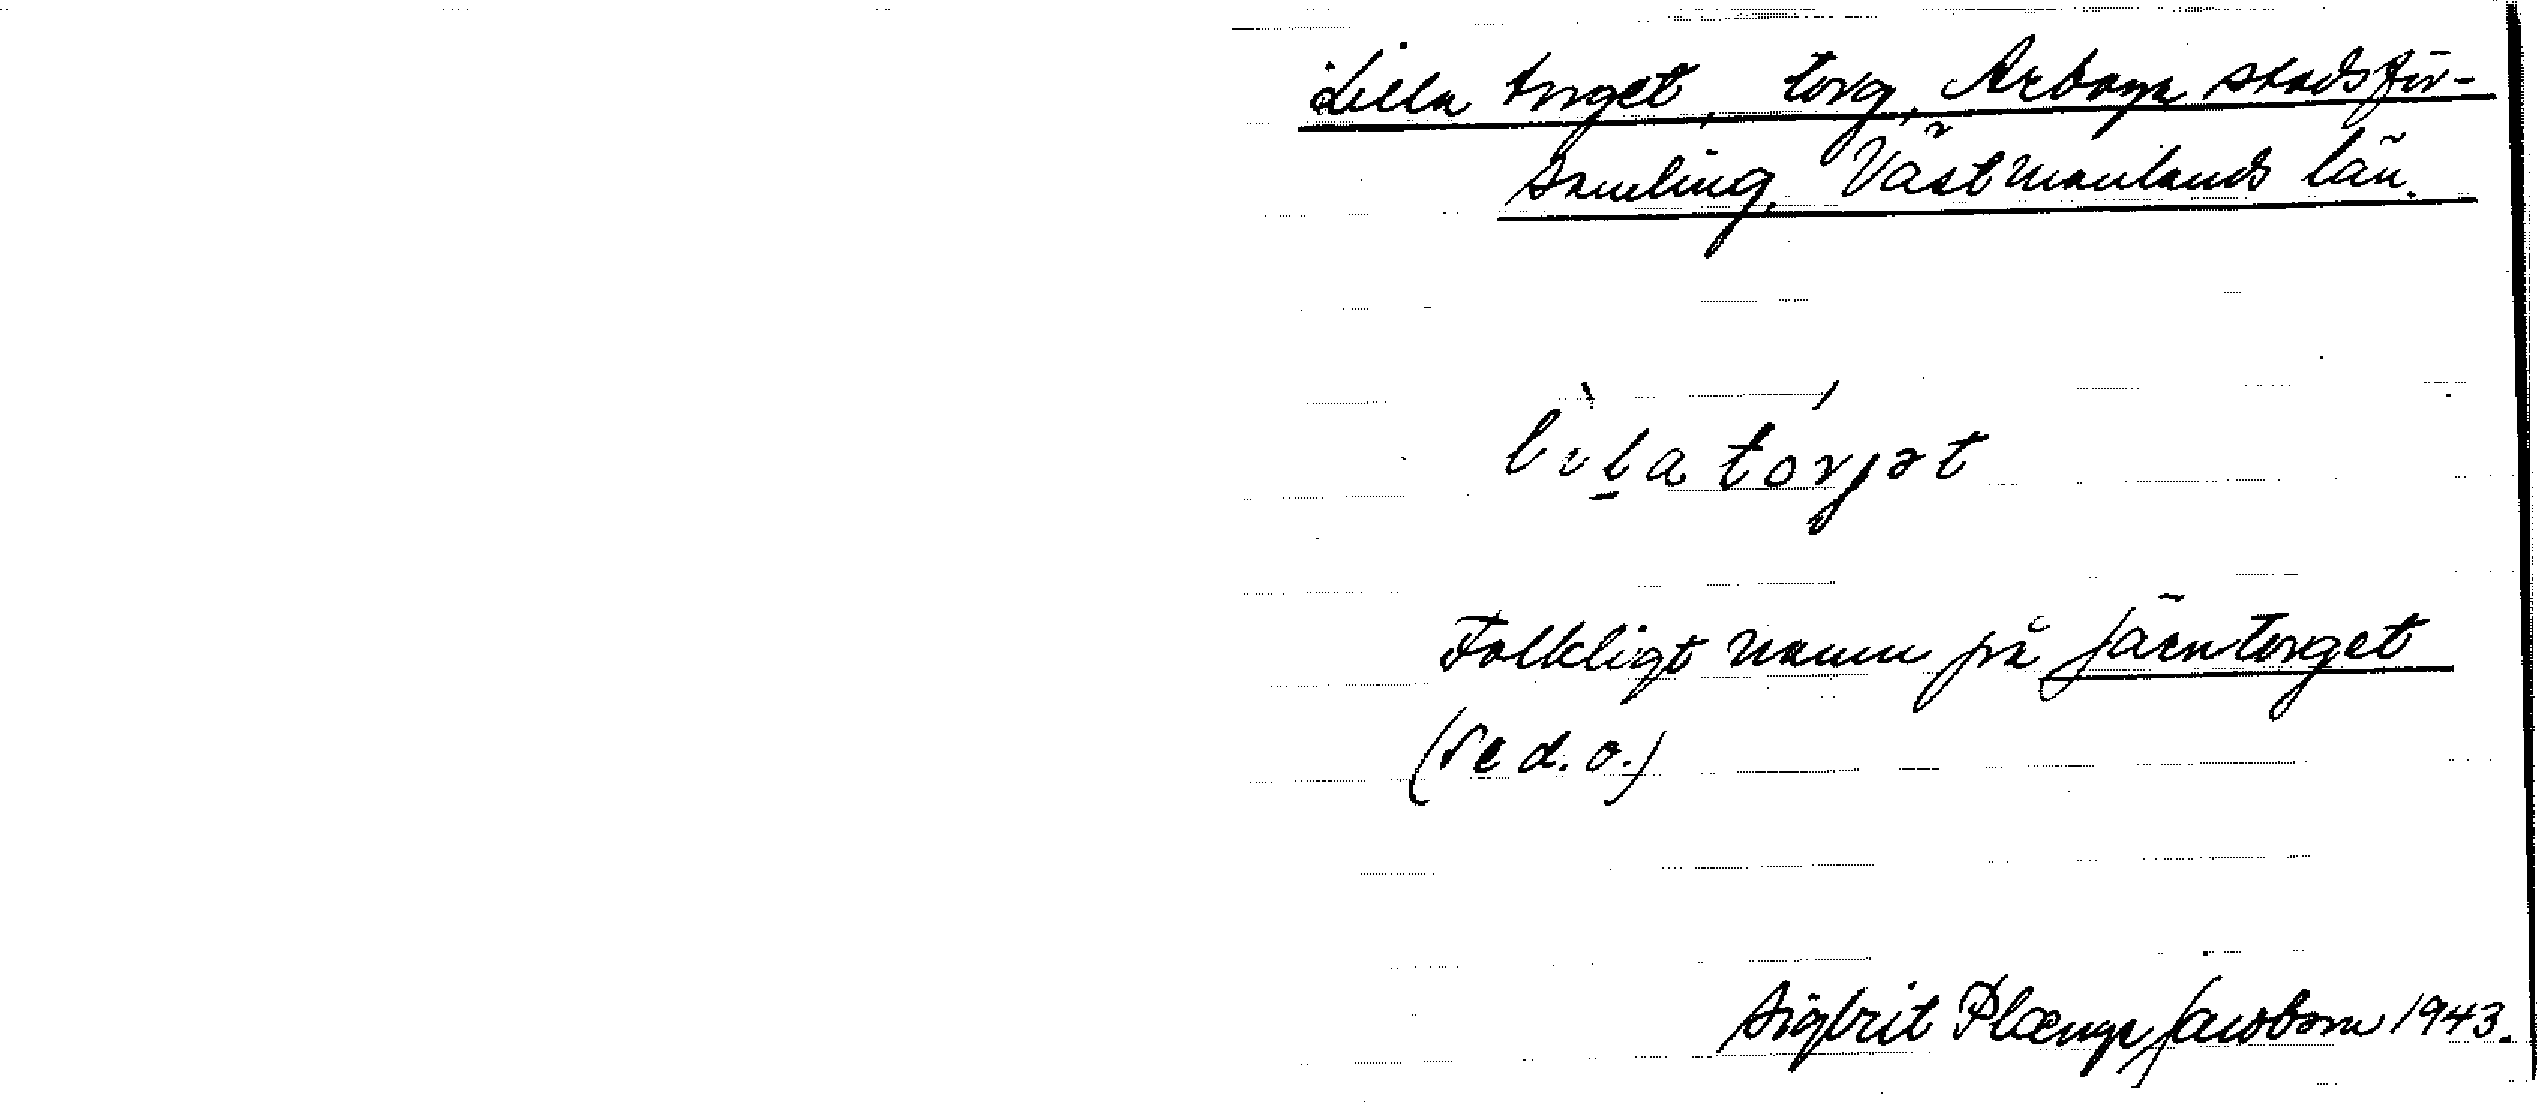 Lilla torget, torg, Arboga stadsför-
samling, Västmanlands län.
lìl̠a tórjət
Folkligt namn på Järntorget
(se d. o.)
Sigbrit Plænge Jacobson 1943.